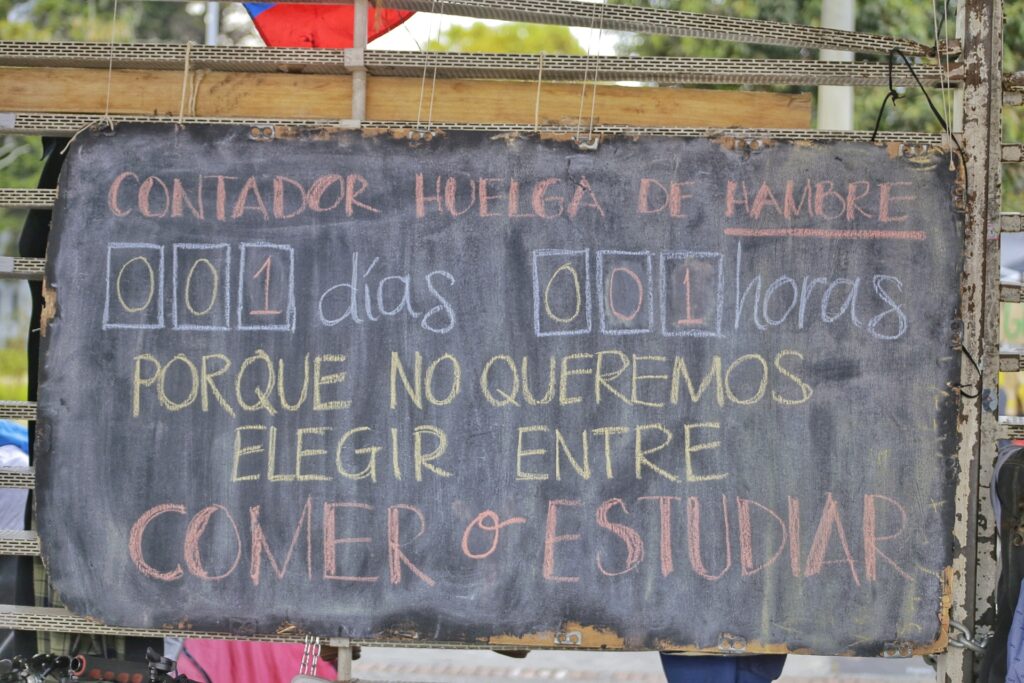 CONTADOR HUELGA DE HAMBRE
001 días 001 horas
PORQUE NO QUEREMOS
ELEGIR ENTRE
COMER o ESTUDIAR